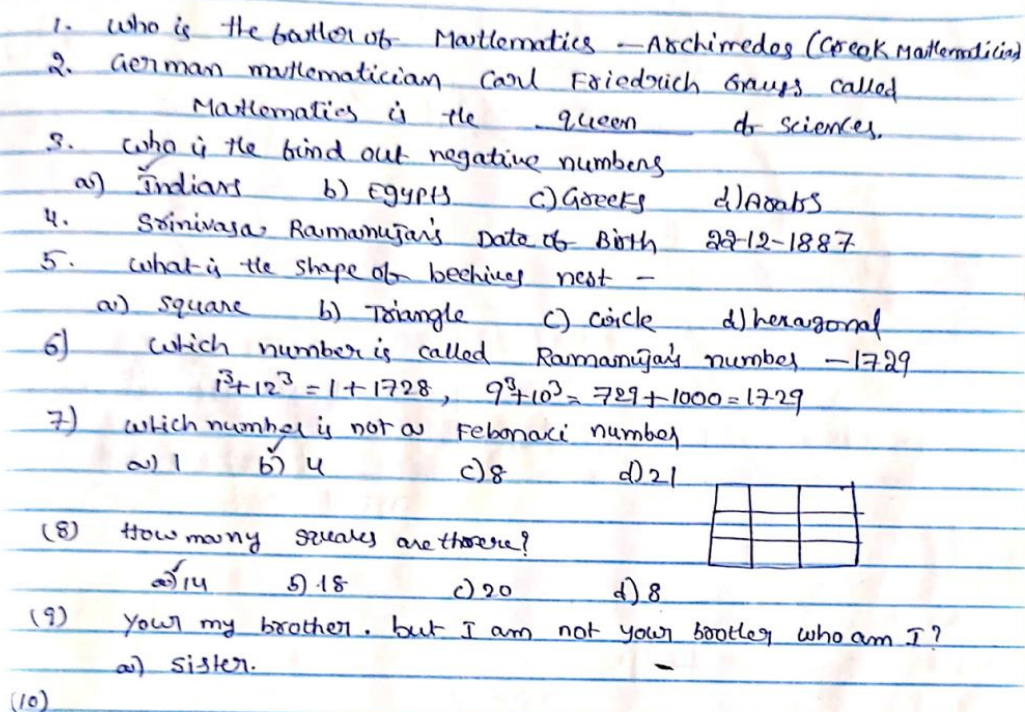 1. Who is the father of Mathematics - Archimedes (Greek Mathematician)
2. German mathematician Carl Friedrich Gauss called
Mathematics is the queen of Sciences.
3. Who is the find out negative numbers
a) Indians b) Egypts c) Greeks d) Arabs
4. Srinivasa Ramanujan's Date of Birth 22-12-1887
5. What is the shape of beehives nest -
a) square b) Triangle c) circle d) hexagonal
6) Which number is called Ramanujan's number - 1729
1³+12³ = 1+1728, 9³+10³ = 729+1000 = 1729
7) Which number is not a Febonaci number
a) 1 b) 4 c) 8 d) 21
(8) How many squares are there?
a) 14 b) 18 c) 20 d) 8
(9) Your my brother. but I am not your brother who am I?
a) sister. -
(10)